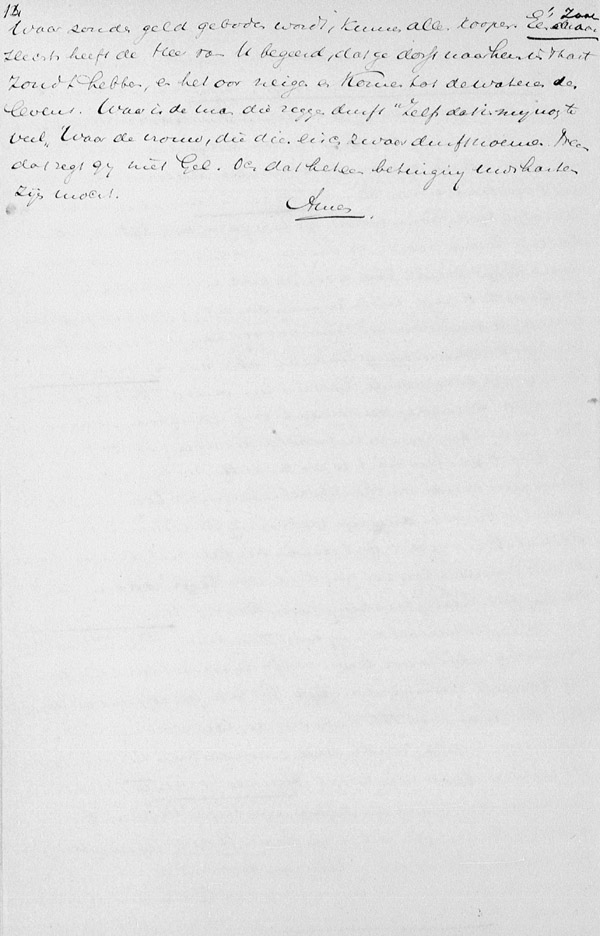 12
Waar zonder geld geboden wordt, kunnen allen koopen. Zoo
zeerst heeft de Heer van U begeerd, dat ge dorst naar hem in 't hart
zoudt hebben, en het oor neigen en komen tot de wateren des
levens. Waar is de man die zeggen durft "Zelf dat is mij nog te
veel", Waar de vrouw, die dien eisch zwaar durft noemen. Neen
dat zegt gij niet Gel. O dat het een betuiging uws harten
zijn mocht.
Amen.